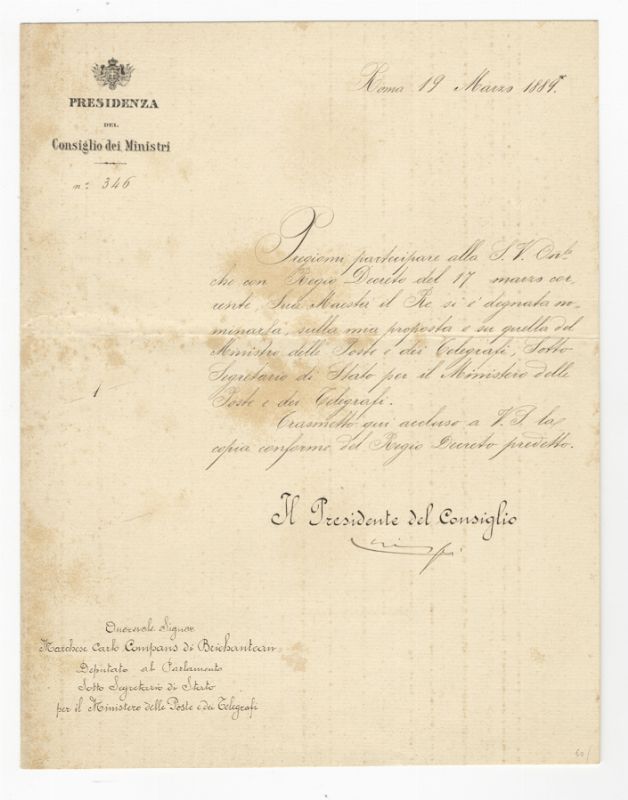 PRESIDENZA
DEL
Consiglio dei Ministri
n° 346
Roma 19 Marzo 1889.
Pregiomi partecipare alla S. V. On.le
che con Regio Decreto del 17 marzo cor,
rente, Sua Maestà il Re si è degnata no,
minarla, sulla mia proposta e su quella del
Ministro delle Poste e dei Telegrafi, Sotto
Segretario di Stato per il Ministero delle
Poste e dei Telegrafi.
Trasmetto qui accluso a V. S. la
copia conforme del Regio Decreto predetto.
Il Presidente del Consiglio
Crispi
Onorevole Signor
Marchese Carlo Compans di Brichanteau
Deputato al Parlamento
Sotto Segretario di Stato
per il Ministero delle Poste e dei Telegrafi